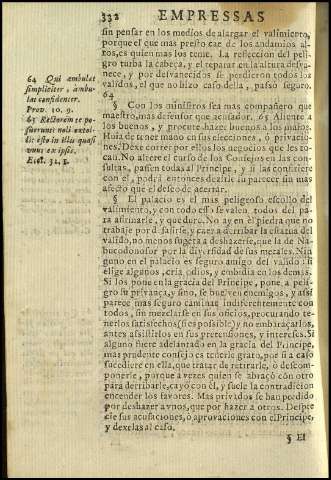 332 EMPRESSAS
sin pensar en los medios de alargar el valimiento,
porque el que mas presto cae de los andamios al-
tos, es quien mas los teme. La reflección del peli-
gro turba la cabeça, y el reparar en la altura desva-
nece, y por desvanecidos se perdieron todos los
validos, el que no hizo caso della, passó seguro.
64
§ Con los ministros sea mas compañero que
maestro, mas defensor que acusador. 65 Aliente a
los buenos, y procure hazer buenos a los malos.
Huia de tener mano en sus elecciones, ó privacio-
nes. Dexe correr por ellos los negocios que les to-
can. No altere el curso de los Consejos en las con-
sultas, passen todas al Principe, y si las confiriere
con el, podrá entonces dezirle su parecer sin mas
afecto que el deseo de acertar.
§ El palacio es el mas peligroso escollo del
valimiento, y con todo esso se valen todos del pa-
ra afirmarle, y que dure. No ay en el piedra que no
trabaje por desasirse, y caer a derribar la estatua del
valido, no menos sugeta a deshazerse, que la de Na-
bucodonosor por la diversidad de sus metales. Nin
guno en el palacio es seguro amigo del valido: si
elige algunos, cria odios, y embidia en los demas.
Si los pone en la gracia del Principe, pone a peli-
gro su privança, y sino, se buelven enemigos, y assi
parece mas seguro caminar indiferentemente con
todos, sin mezclarse en sus oficios, procurando te-
nerlos satisfechos (si es posible) y no embaraçarlos,
antes assistirlos en sus pretensiones, y intereses. Si
alguno fuere adelantado en la gracia del Principe,
mas prudente consejo es tenerle grato, por si a caso
sucediere en ella, que tratar de retirarle, ó descom-
ponerle, porque a vezes quien se abraçó con otro
para derribarle, cayó con él, y suele la contradicion
encender los favores. Mas privados se han perdido
por deshazer a unos, que por hazer a otros. Despre
cie sus acusaciones, ó aprovaciones con el Principe,
y dexelas al caso.
§ El
64 Qui ambulat
simpliciter, ambu-
lat confidenter.
Prov. 10. 9.
65 Rectorem te po-
suerunt noli extol-
li: esto in illis quasi
unus ex ipsis.
Eccl. 32, 1.